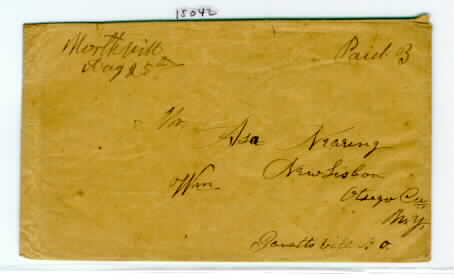 15042
Paid 3
Aug 25th
Mr
Asa Nearing
New Lisbon
Wm
Otsego Co
N.Y.
P.O.